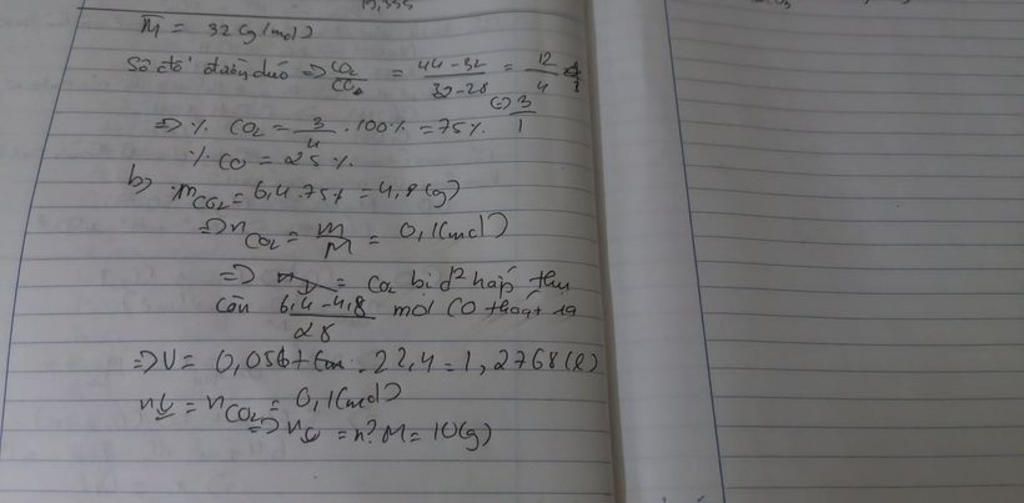 M̄ = 32 (g/mol)
Sơ đồ đường chéo => CO₂/CO = (44-32)/(32-28) = 12/4
<=> 3/1
=> % CO₂ = 3/4 . 100% = 75%
% CO = 25%
b) m CO₂ = 6,4.75% = 4,8 (g)
=> n CO₂ = m/M = 0,1 (mol)
=> CO₂ bị hấp thu
còn (6,4-4,8)/28 mol CO thoát ra
=> V = 0,057 . 22,4 = 1,2768 (l)
n↓ = n CO₂ = 0,1 (mol)
=> m↓ = n.M = 10 (g)